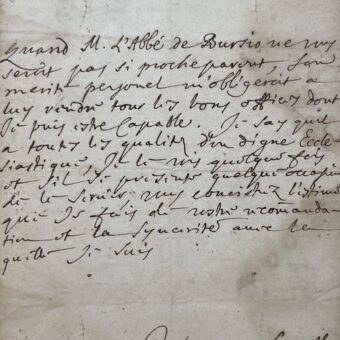 Quand M. L'Abbé de Bursio ne vous
seroit pas si proche parent, son
merite personel m'obligeroit a
luy rendre tous les bons offices dont
Je puis estre Capable. Je say quil
a toutes les qualités d'un digne Eccle-
siastique, Je le vois quelque fois
et s'il se presente quelque occasion
de le servir vous conoistrez l'estime
que Je fais de vostre recomanda-
tion et la syncerité avec la
quelle Je suis